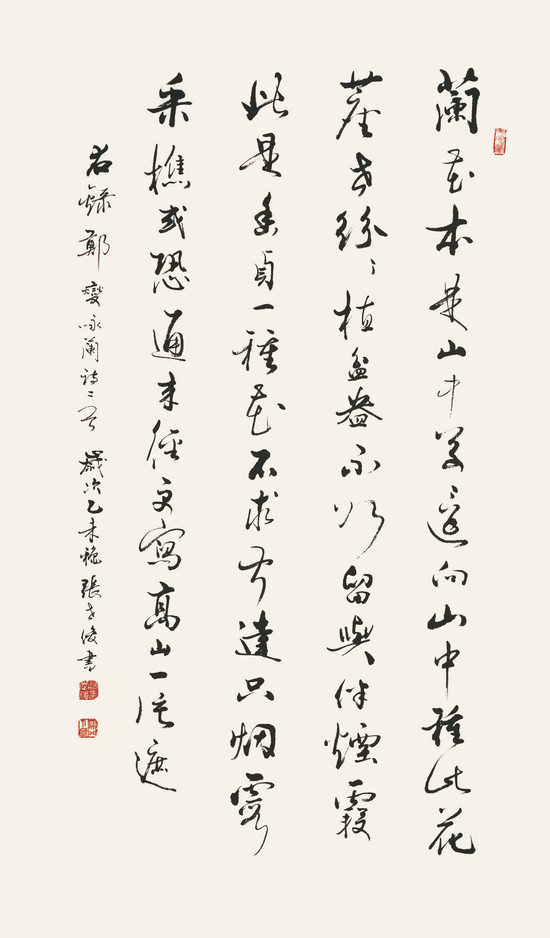 蘭花本是山中草還向山中種此花
塵世紛〻植盆盎不如留與伴煙霞
此是幽貞一種花不求聞達只烟霞
采樵或恐通來徑更寫高山一片遮
右錄鄭燮咏蘭詩二首 歲次乙未穐張世俊書